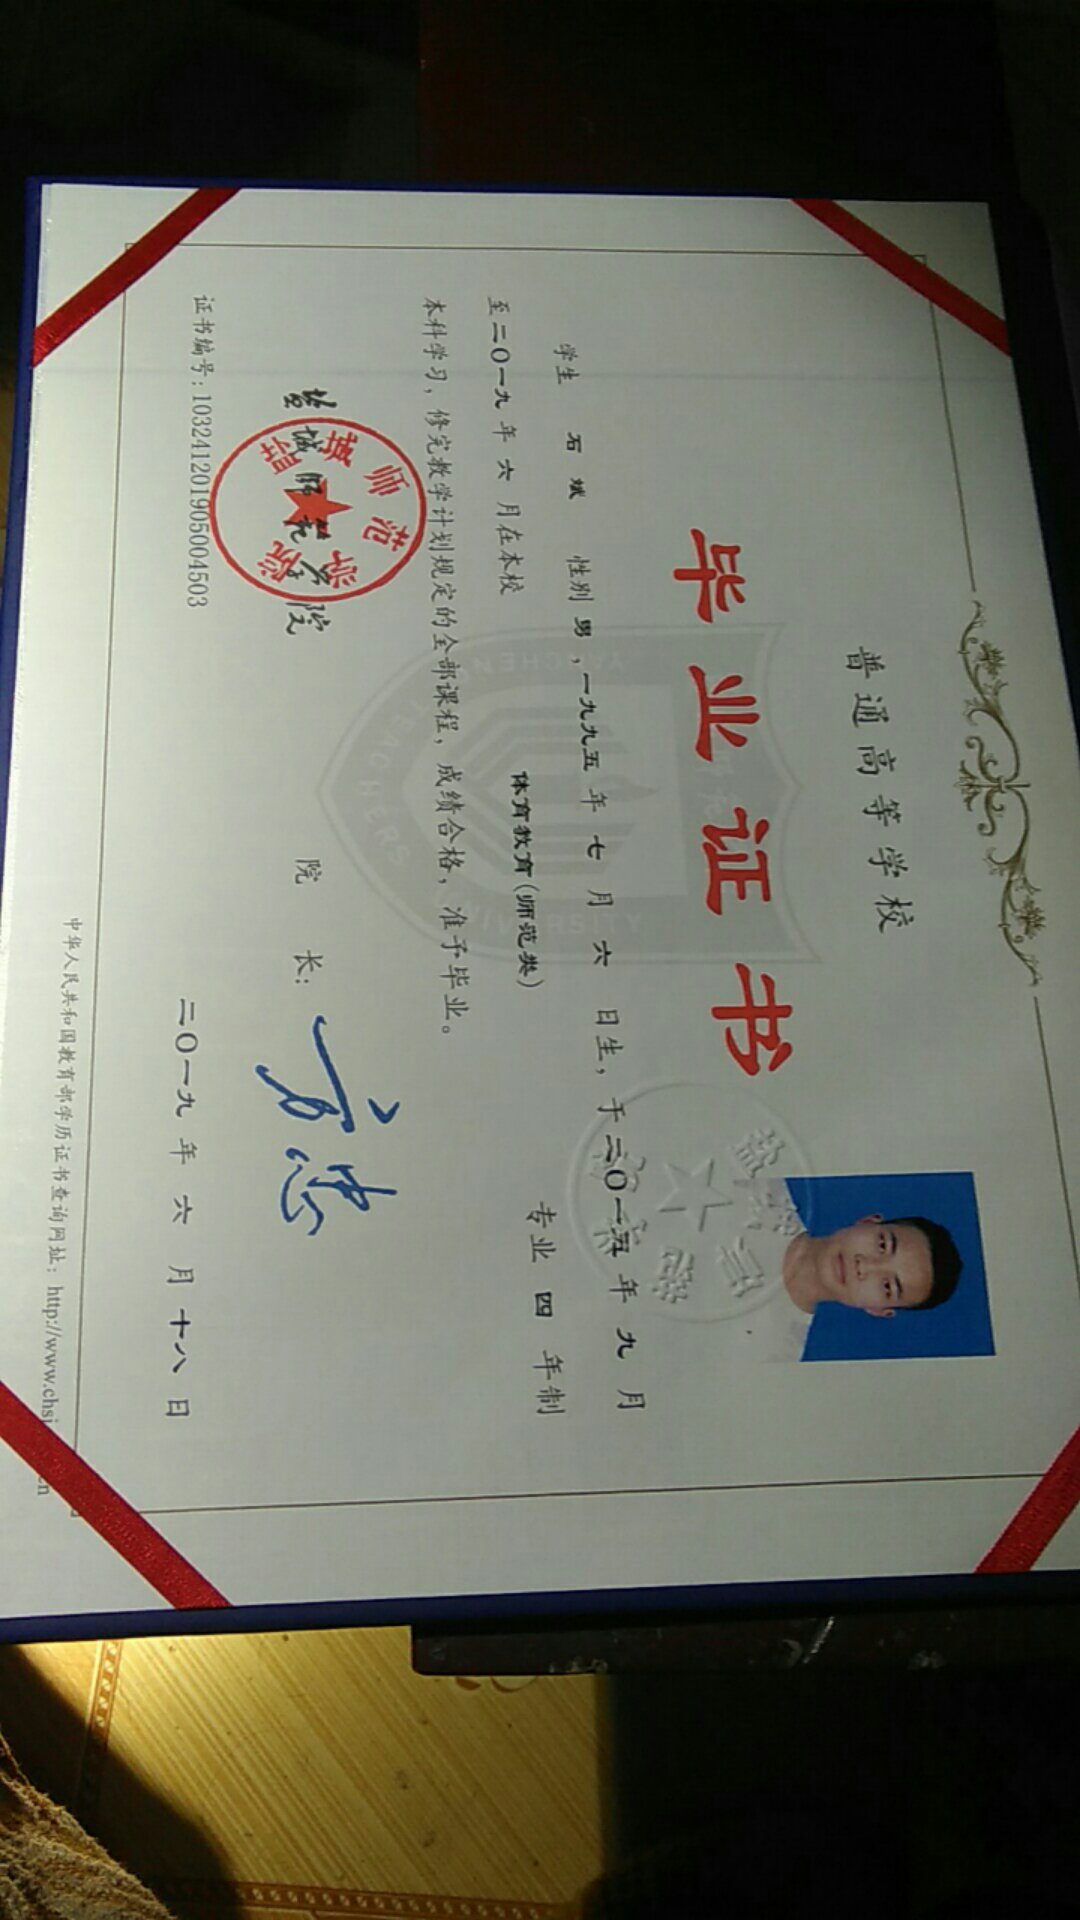 普通高等学校
毕业证书
学生 石斌 性别 男，一九九五年七月六日生，于二〇一五年九月
至二〇一九年六月在本校 体育教育(师范类) 专业 四 年制
本科学习，修完教学计划规定的全部课程，成绩合格，准予毕业。
盐城师范学院
盐城师范学院
院 长：
证书编号：103241201905004503
二〇一九年六月十八日
中华人民共和国教育部学历证书查询网址：http://www.chsi
cn
YANCHENG TEACHERS UNIVERSITY